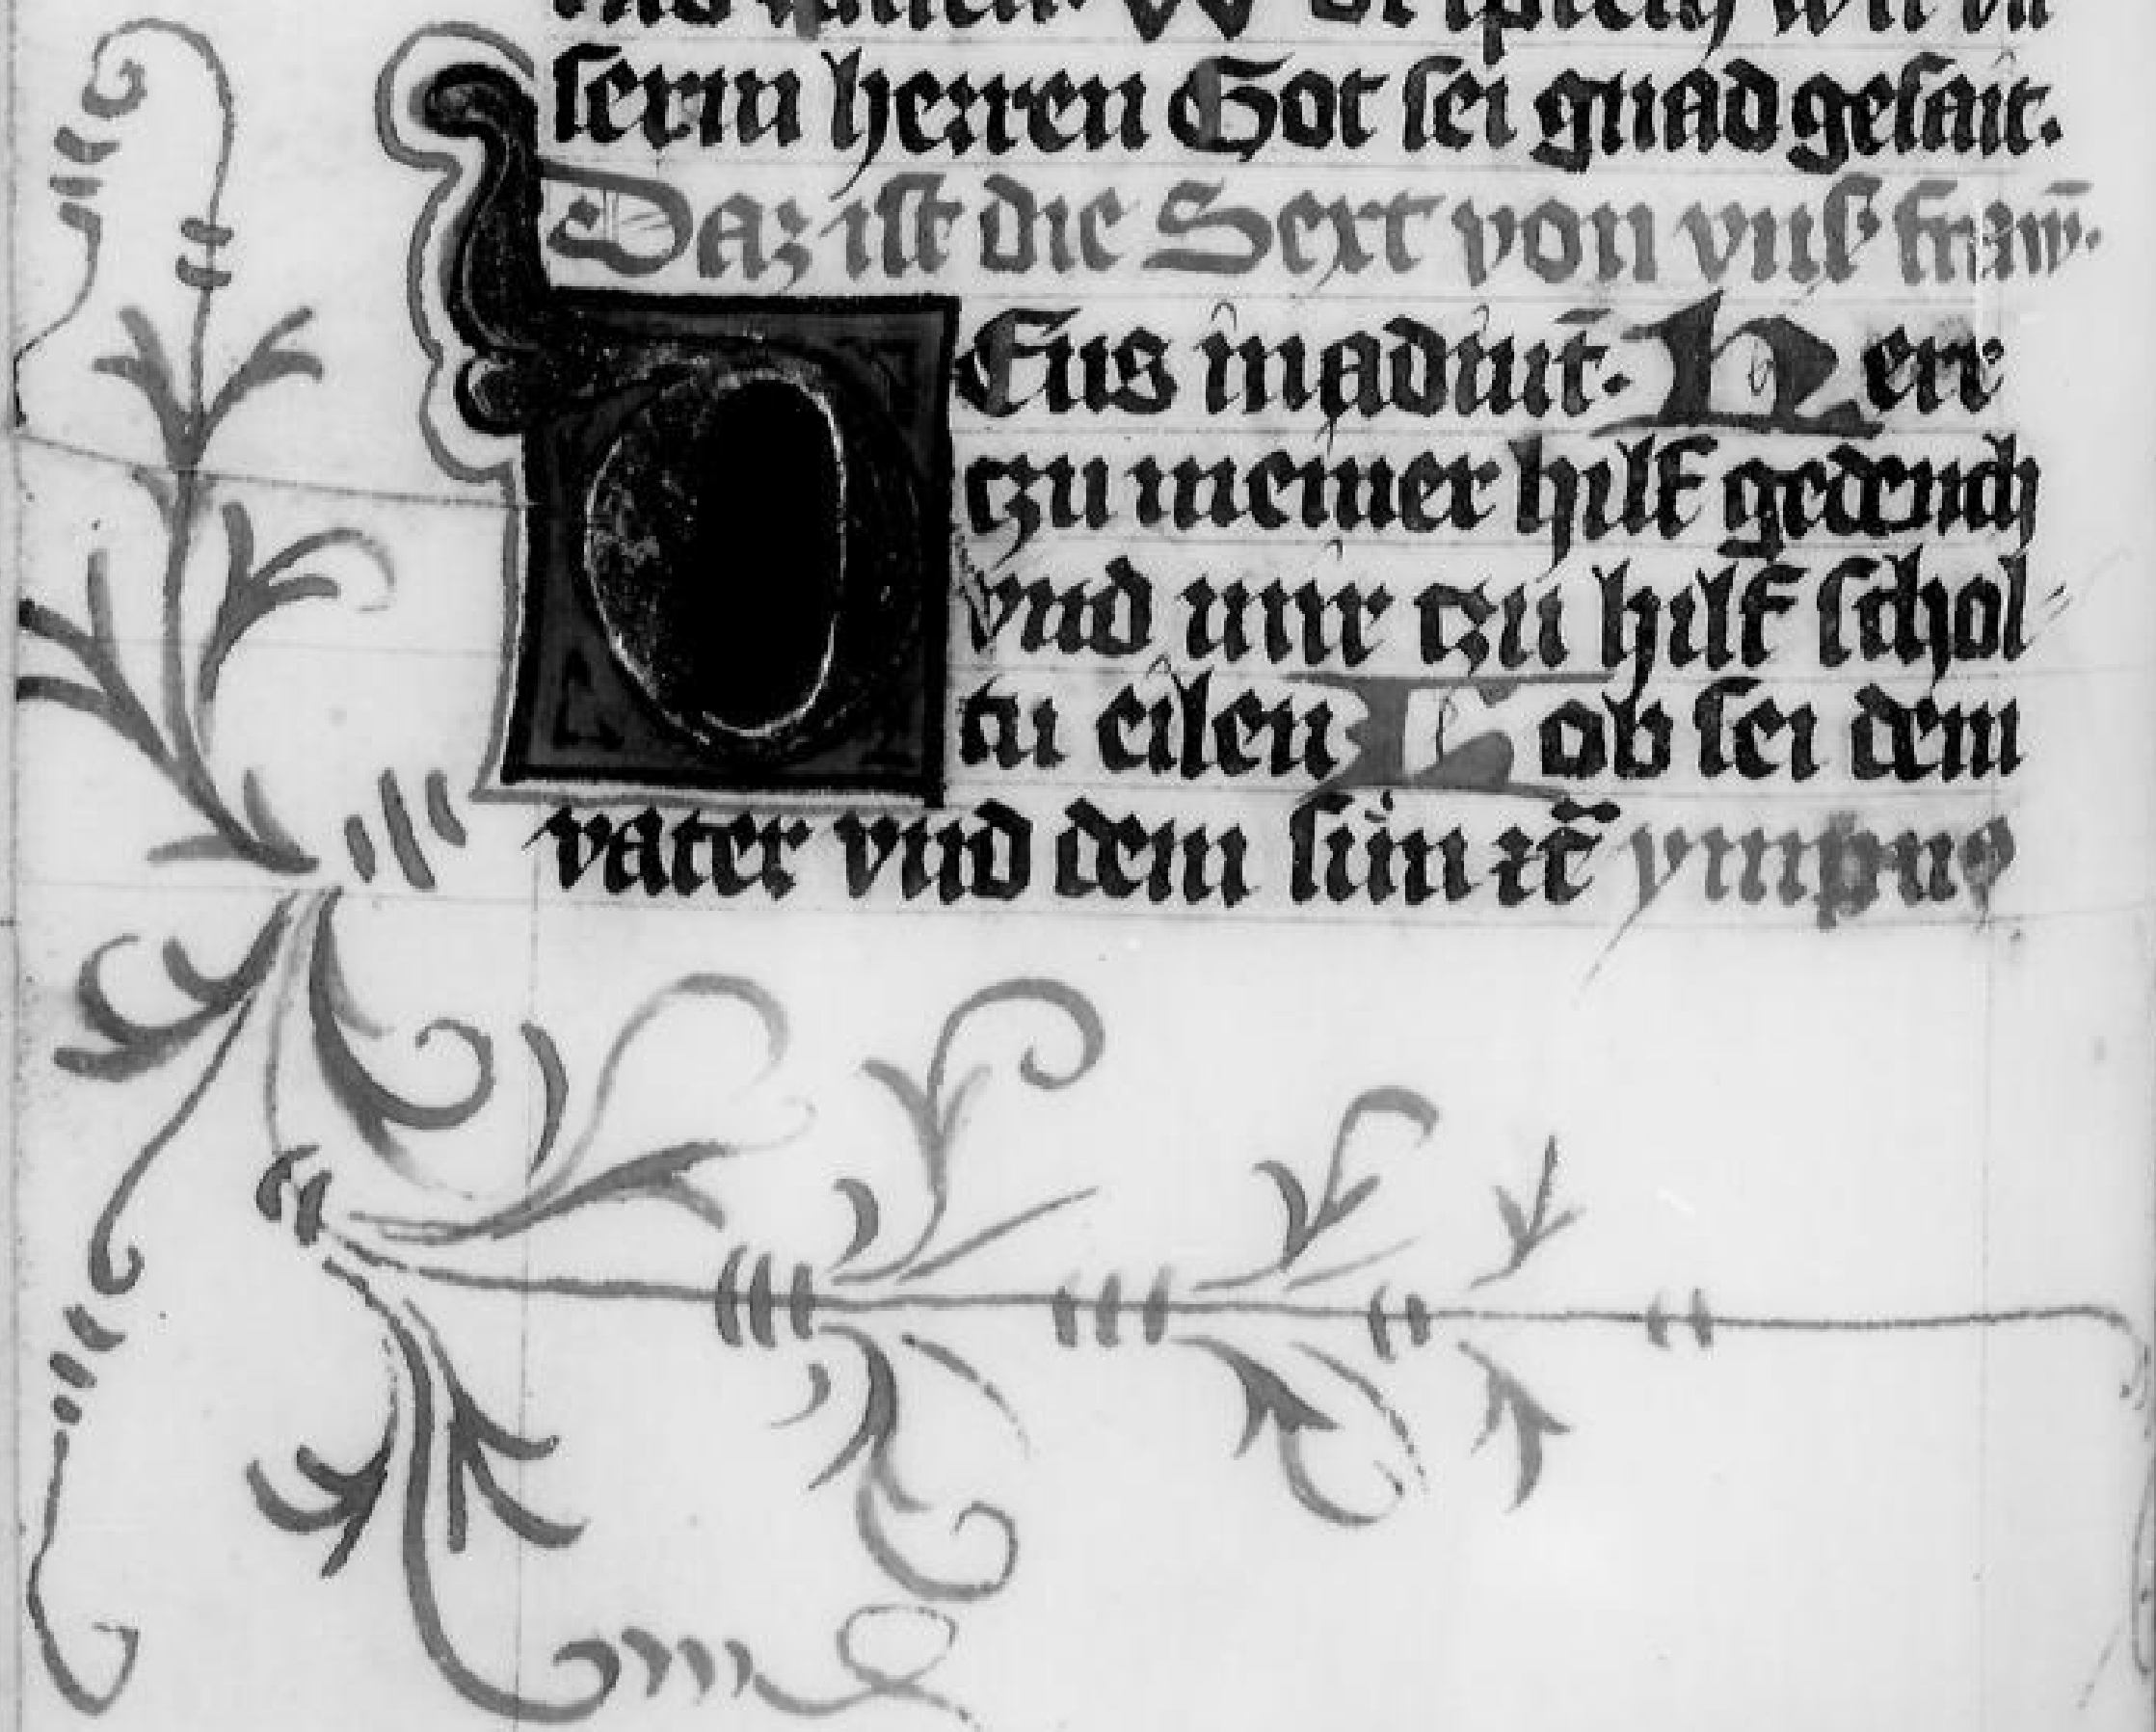 wir vn
serm herren Got sei gnad gesait.
Daz ist die Sext von vnsˀ fraw̄.
DEus in adiut̄. Herr
tzu meiner hilf gedench
vnd mir tzu hilf schol-
tu eilen Lob sei dem
vater vnd dem sun ꝛc̄ ympnꝰ